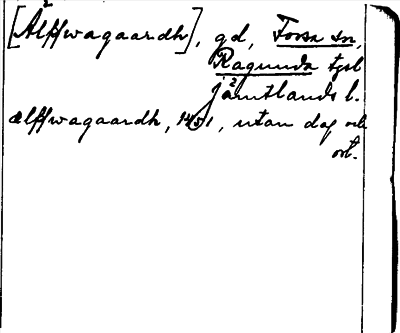 [Älffwagaardh], gd, Forsa sn,
Ragunda tgsl
jämtlands l.
ælffwagaardh, 1451, utan dag och
ort.